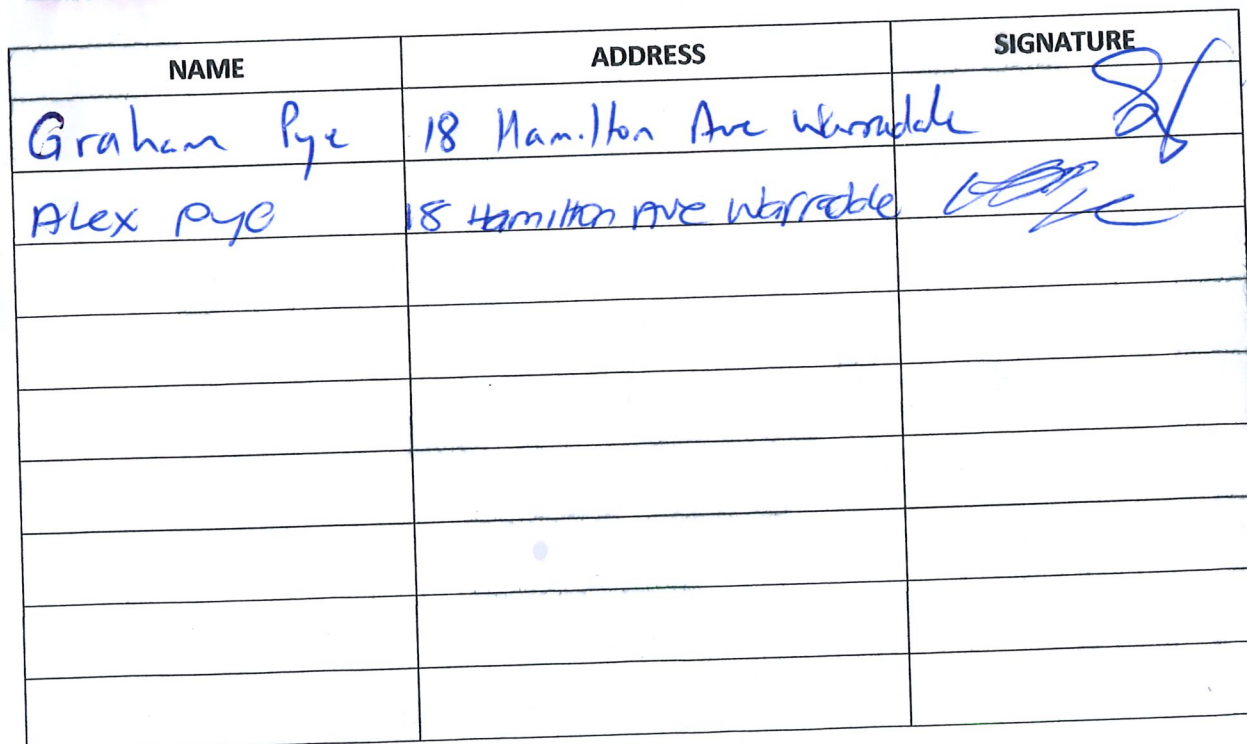 NAME ADDRESS SIGNATURE
Graham Pye 18 Hamilton Ave Warradale
Alex Pye 18 Hamilton Ave Warradale